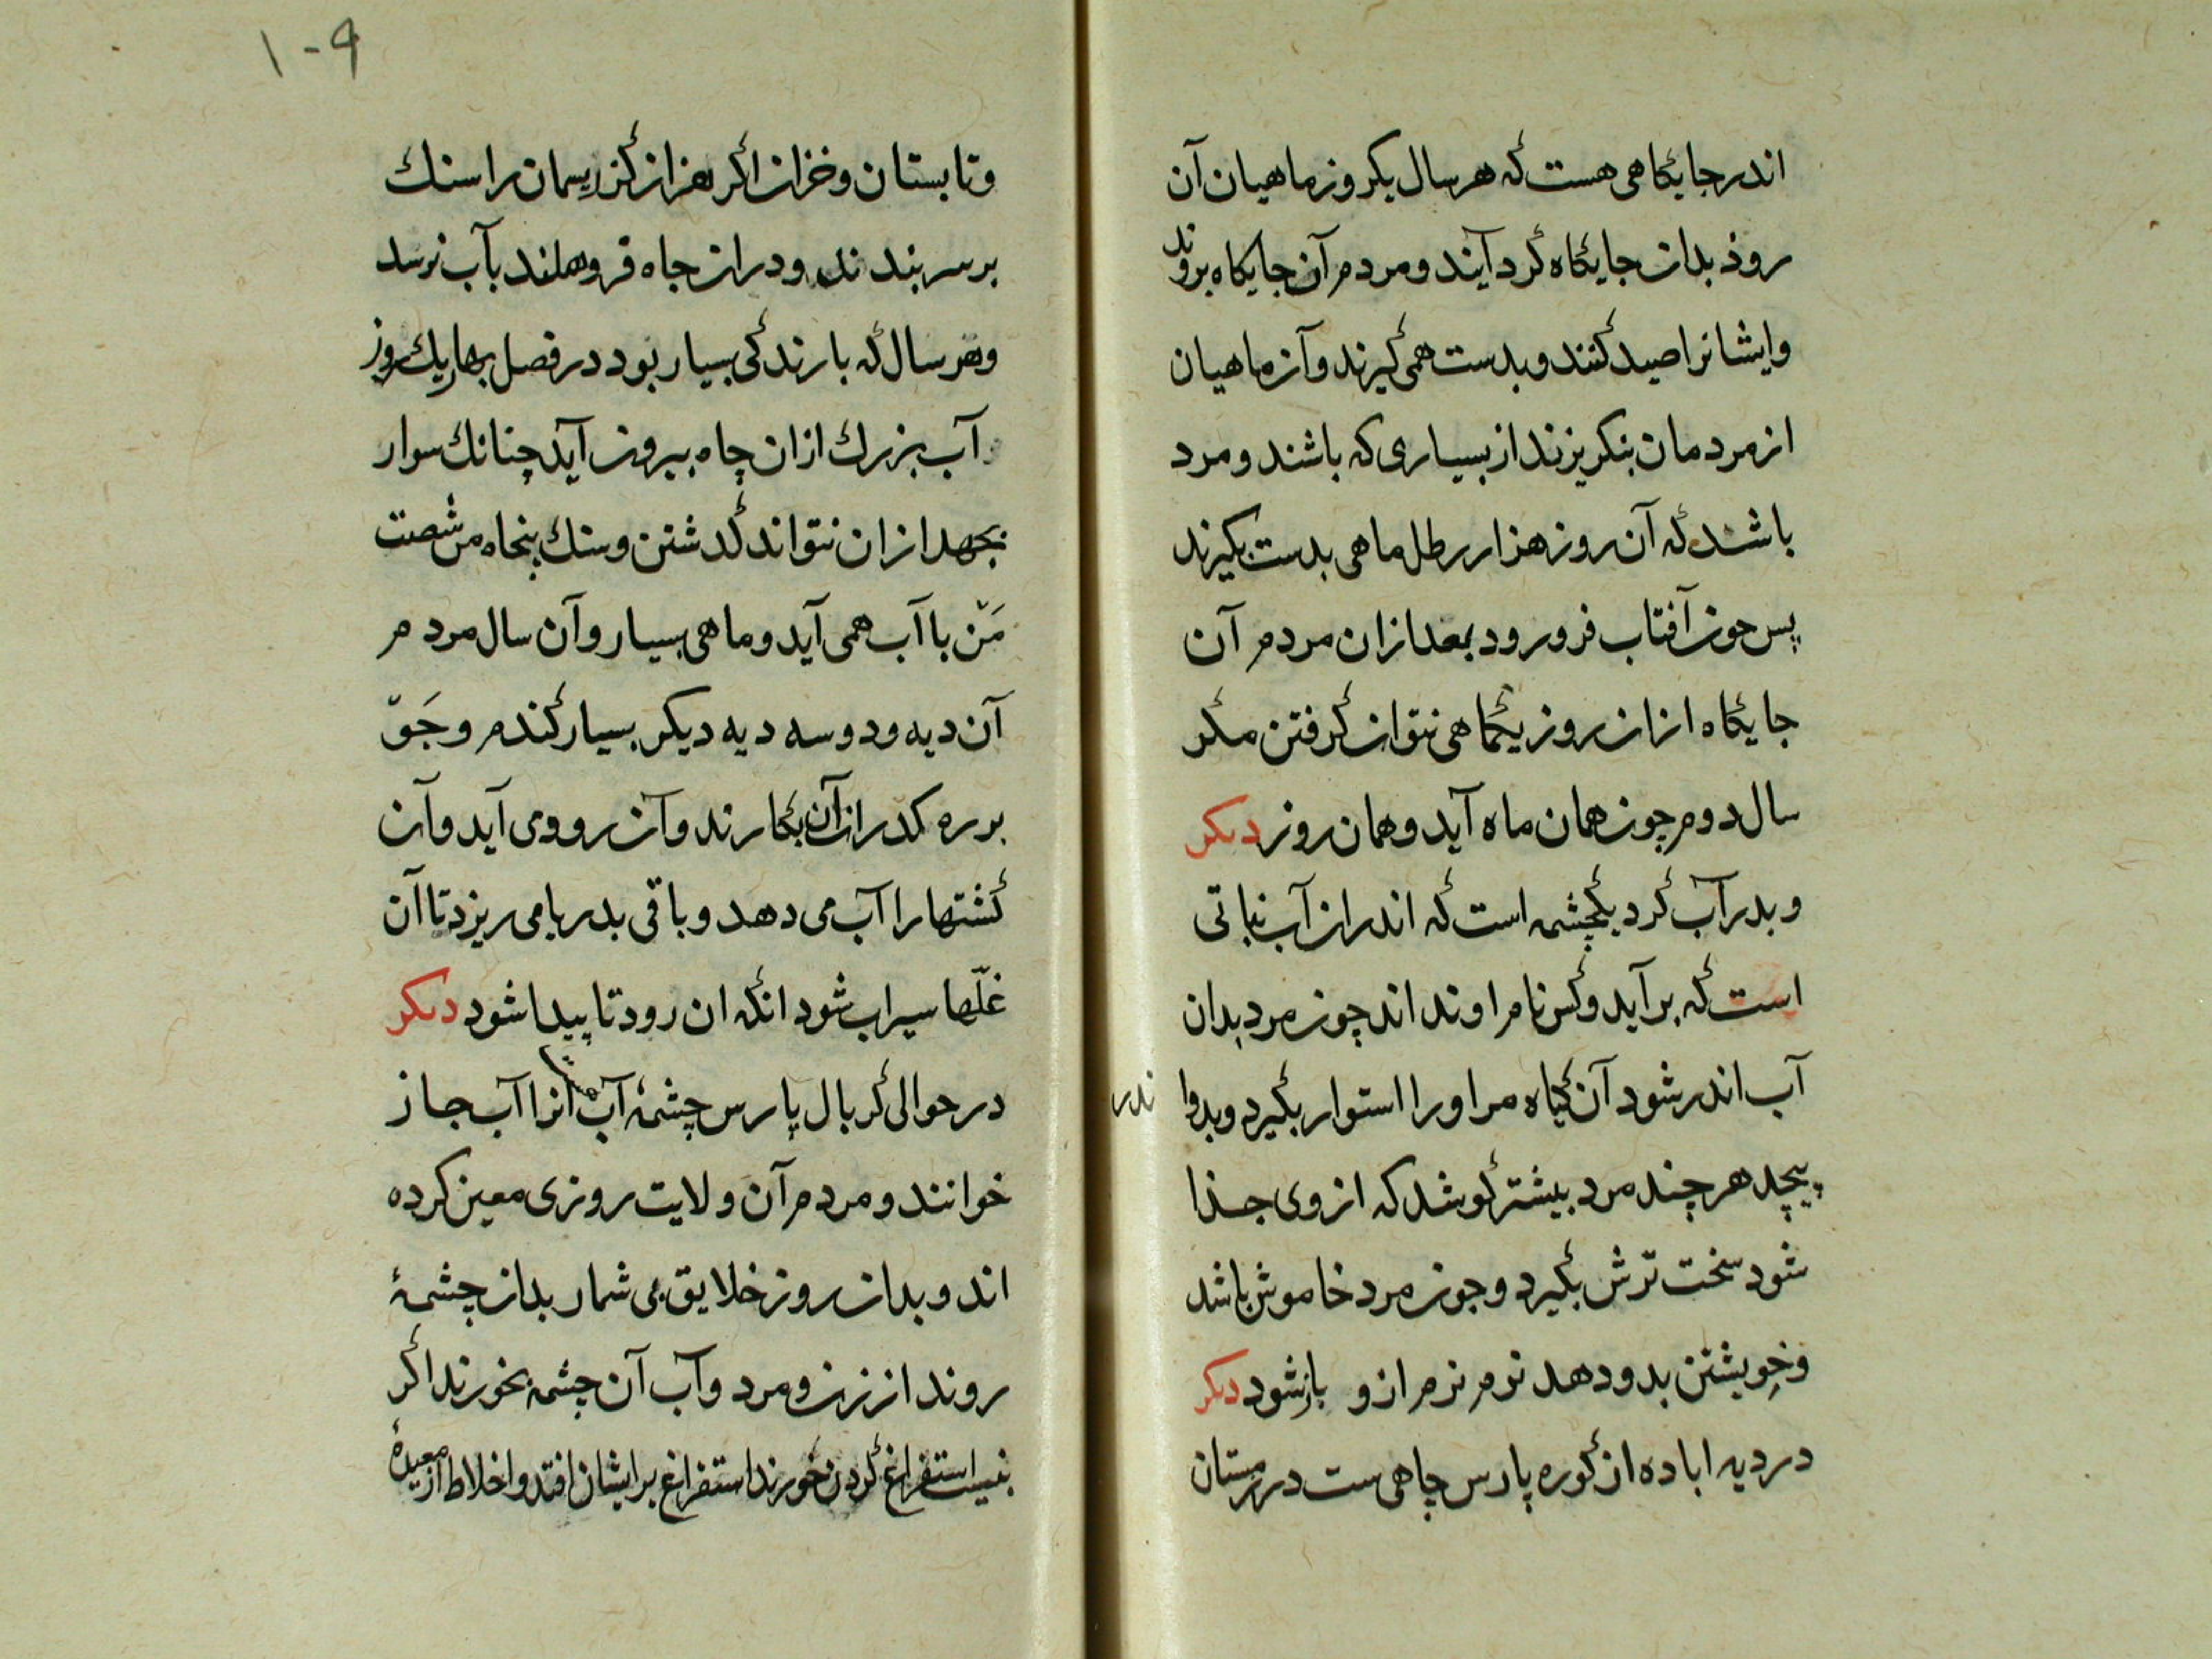 اندر جایکاهی هست که هر سال یکروز ماهیان آن
روذ بدان جایکاه کرد آیند و مردم آن جایکاه بروند
وایشانرا صید کنند و بدست همی کیرند و آن ماهیان
از مردمان بنکریزند از بسیاری که باشند و مرد
باشند که آن روز هزار رطل ماهی بدست بکیرند
پس جون آفتاب فرو رود بعد از ان مردم آن
جایکاه از ان روز یکماهی نتوان کرفتن مکر
سال دوم چون همان ماه آید و همان روز دیکر
و بدرآب کرد یکچشمه است که اندران آب نباتی
است که برآید و کس نام او نداند چون مرد بدان
آب اندر شود آن کیاه مر او را استوار بکیرد و بدو اندر
پیچد هر چند مرد بیشتر کوشد که از وی جذا
شود سخت ترش بکیرد و جون مرد خاموش باشد
و خویشتن بدو دهد نرم نرم ازو باز شود دیکر
در دیه اباده از کوره پارس چاهی ست در زمستان
۱۰۹
وتابستان و خزان اکر هزار کز ریسمان را سنك
بر سر بندند و دران جاه فروهلند بآب نرسد
وهر سال که بارندکی بسیار بود در فصل بهار یك روز
آب بزرك ازان چاه بیرون آید چنانك سوار
بجهد ازان نتواند کدشتن و سنك پنجاه من شصت
مَنّ با آب همی آید و ماهی بسیار و آن سال مردم
آن دیه و دو سه دیه دیکر بسیار کندم و جَوّ
بر ره کذر آن بکارند و آن رود می آید و آن
کشتها را آب می دهد و باقی بدریا می ریزد تا آن
غلّها سیراب شود انکه ان رود ناپیدا شود دیکر
در حوالی کربال پارس چشمهٔ آب انرا آب جاز
خوانند و مردم آن ولایت روزی معین کرده
اند و بدان روز خلایق بی شمار بدان چشمهٔ
روند از زن و مرد و آب آن چشمه بخورند اکر
بنیت استفراغ کردن خورند استفراغ بر ایشان افتد و اخلاط از معیدهٔ